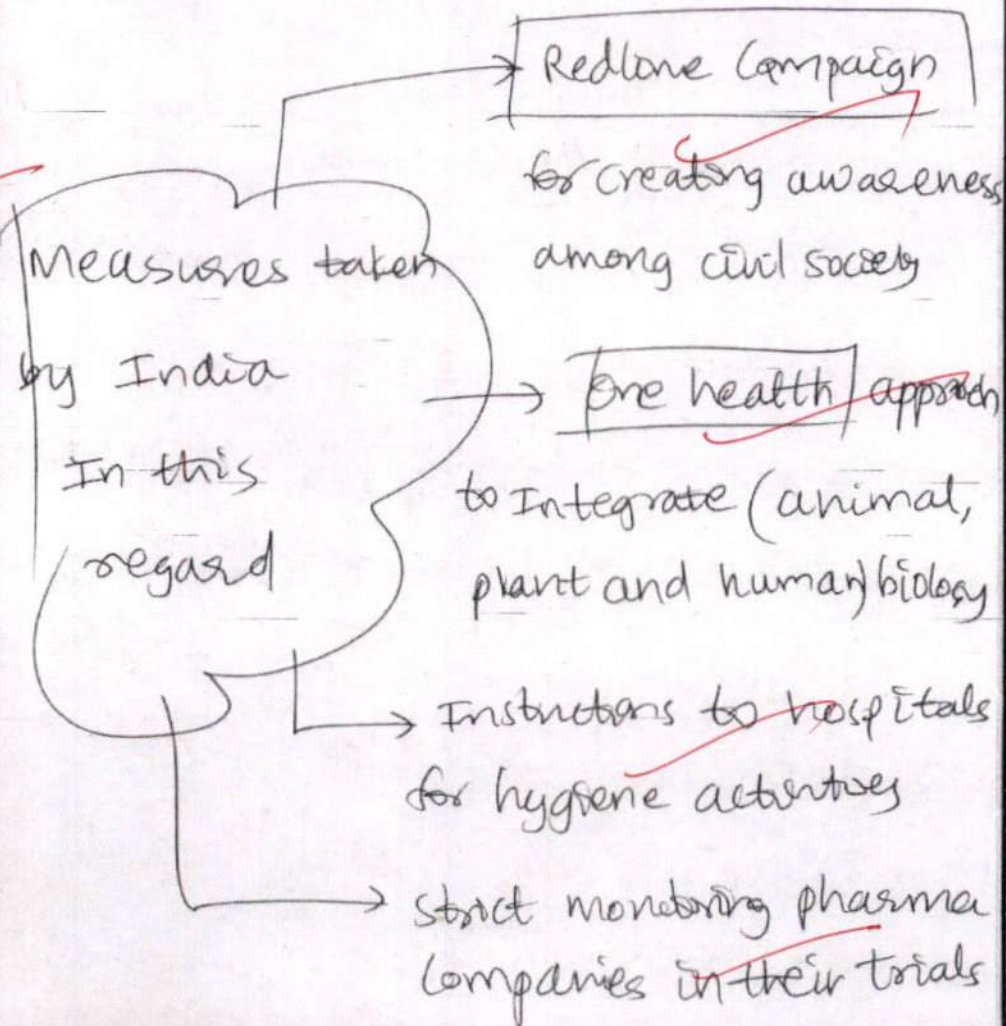 Measures taken
by India
In this
regard
Redline Campaign
for creating awareness
among civil society
One health approach
to Integrate (animal,
plant and human) biology
Instructions to hospitals
for hygiene activities
Strict monitoring pharma
companies in their trials